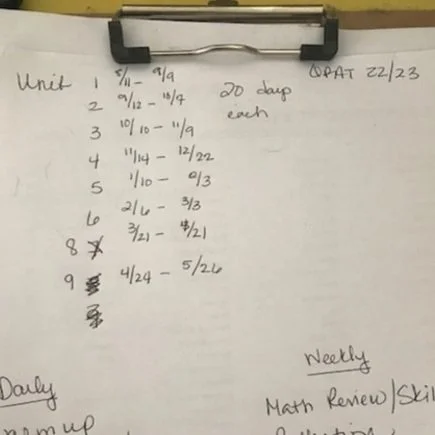 Unit 1 8/11 - 9/9
2 9/12 - 10/7
20 days
each
QPAT 22/23
3 10/10 - 11/9
4 11/14 - 12/22
5 1/10 - /3
6 2/6 - 3/3
8 3/21 - 4/21
9 4/24 - 5/26
Daily
Weekly
Math Review/Skil